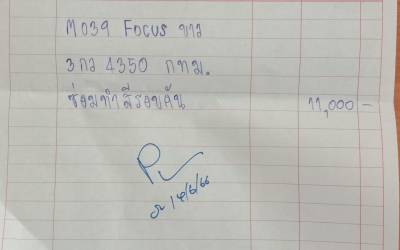 M039 FOCUS ขาว
3กว 4350 กทม.
ซ่อมทำสีรอบคัน 11,000-